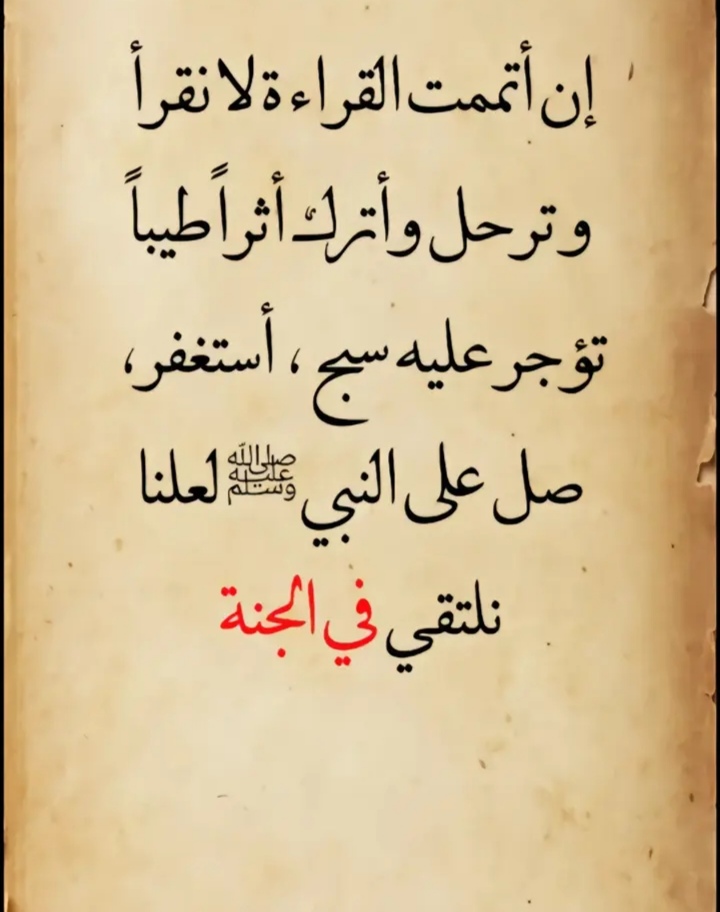 إن أتممت القراءة لا نقرأ
و ترحل وأترك أثراً طيباً
تؤجر عليه سبح ، أستغفر،
صل على النبي ﷺ لعلنا
نلتقي في الجنة